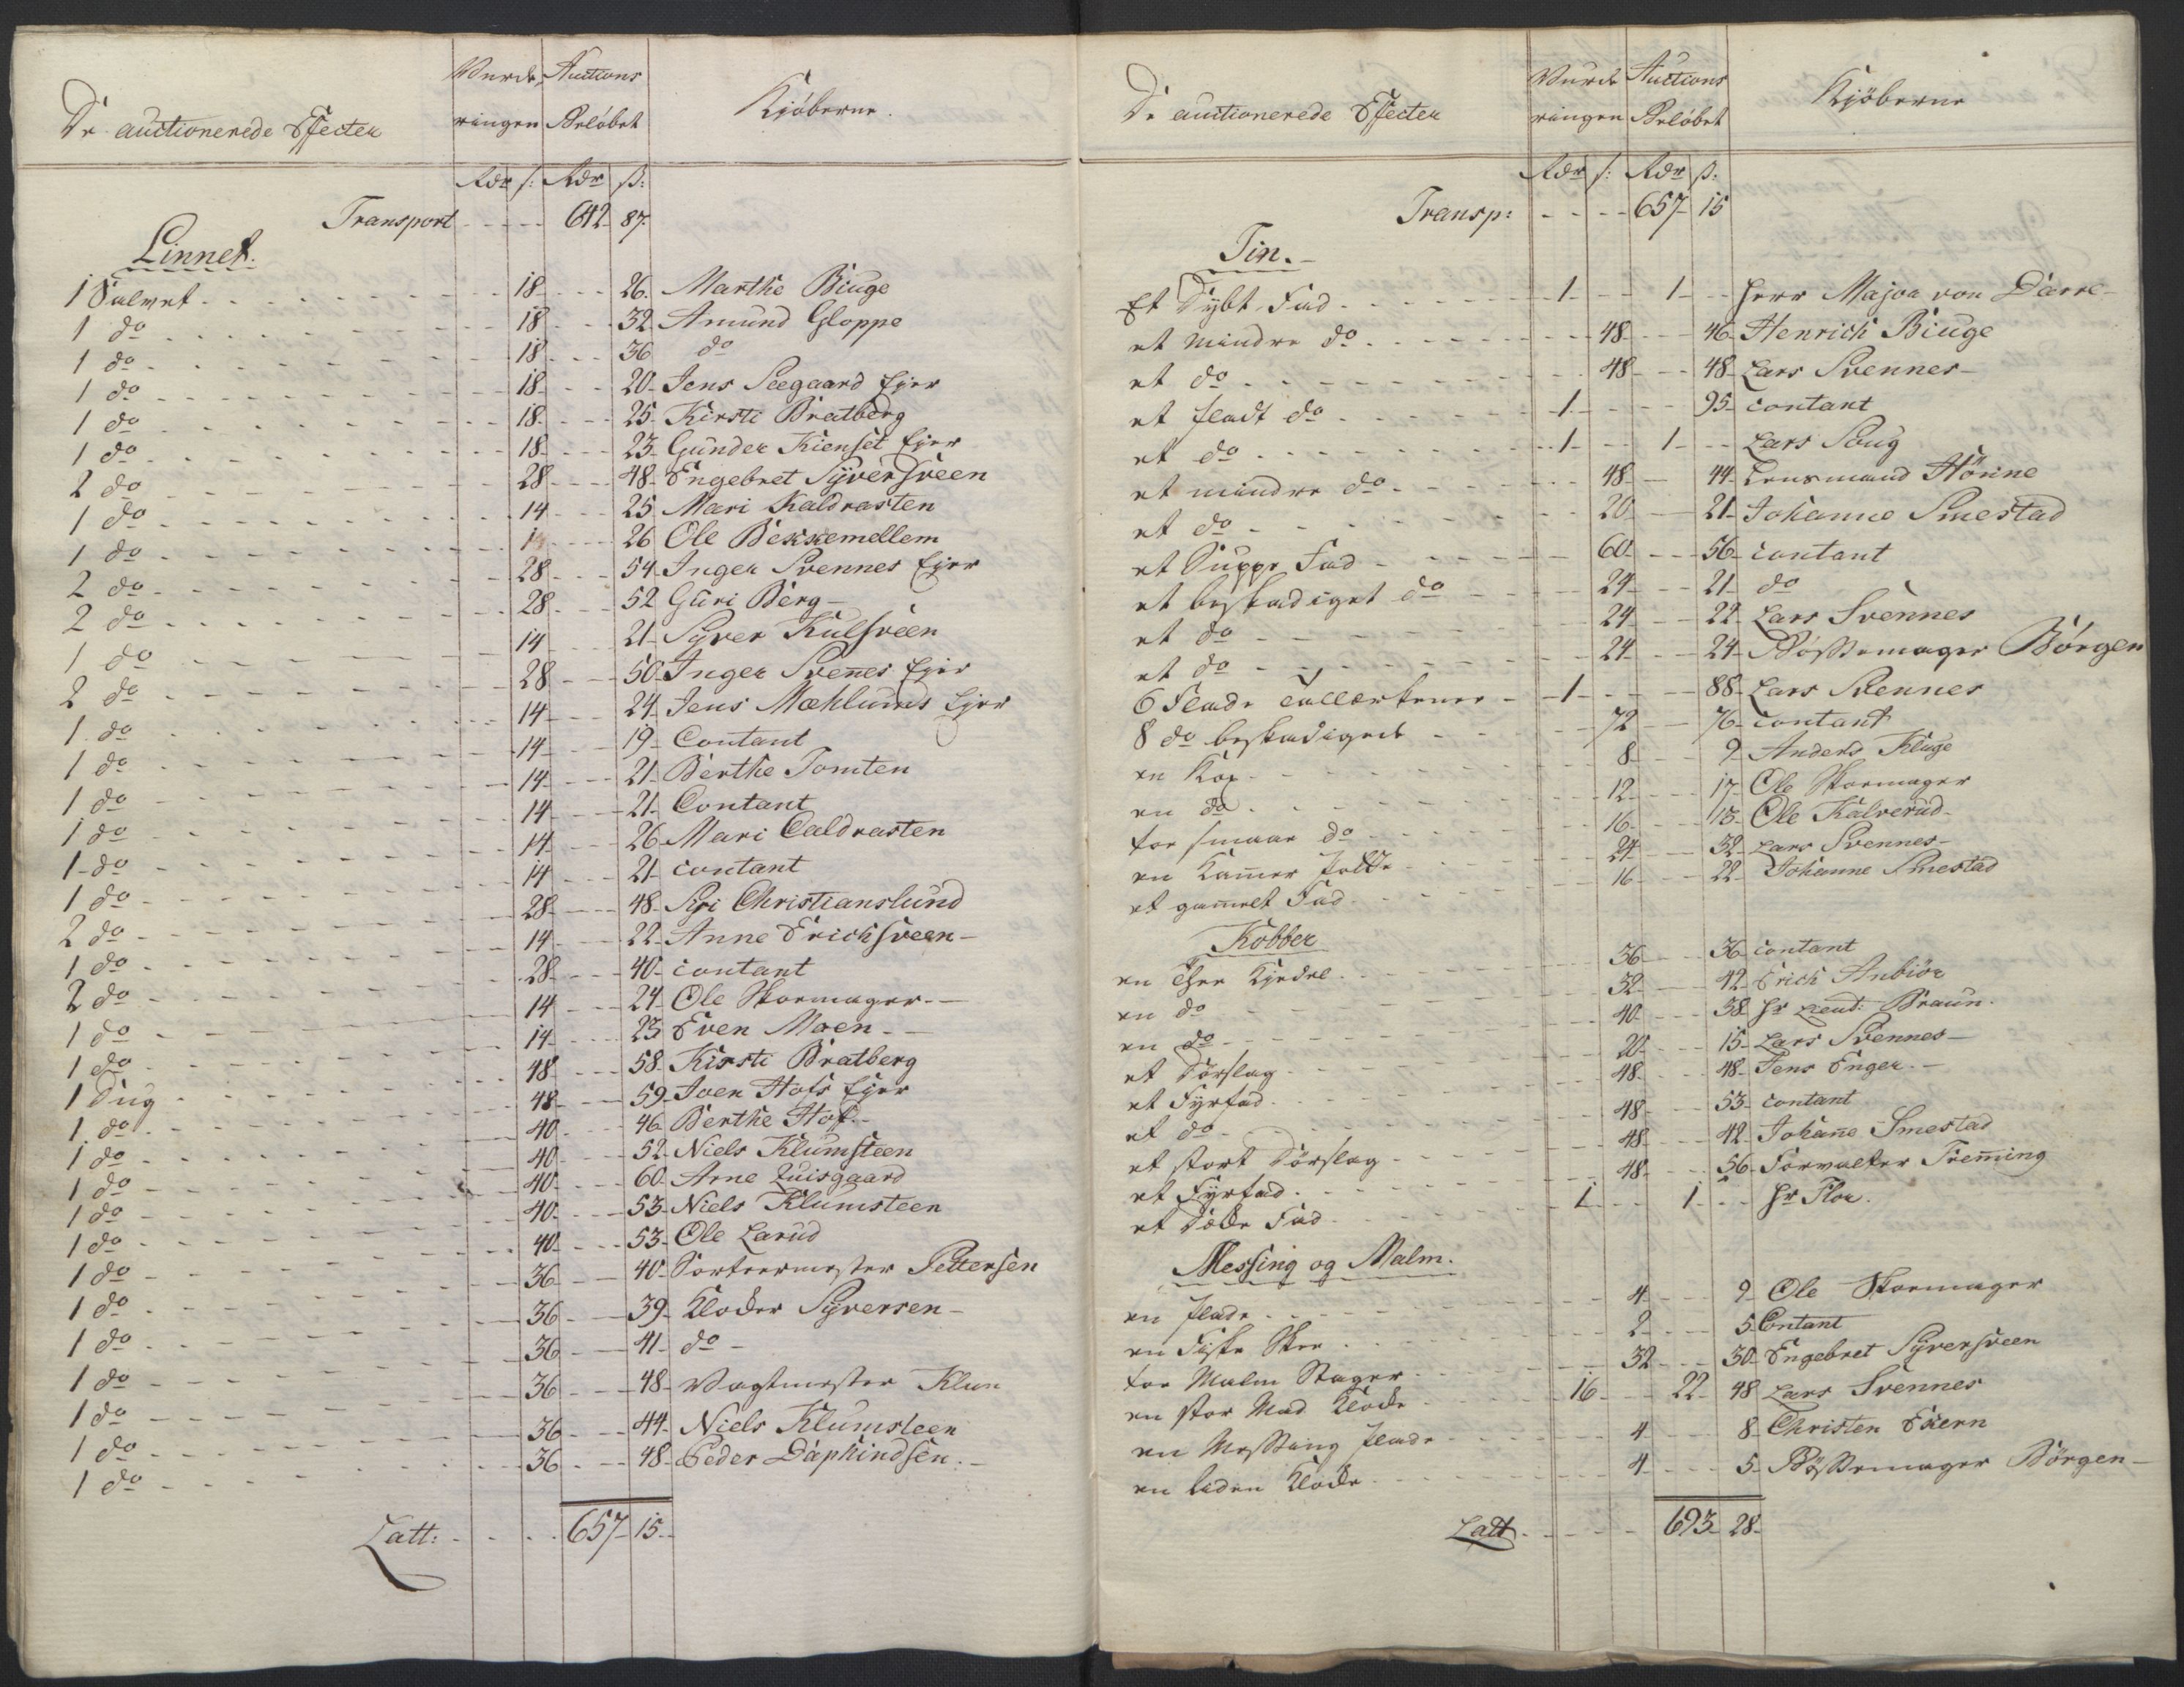 De auctionerede Effecter | Vurderingen | Auctions Beløbet | Kjøberne.
Rdr s: Rdr s:
Transport - - - - 642 87.
Linnet.
1 Salvet - - 18 - - 26. Marthe Biuge
1 do - - 18 - - 32 Amund Gloppe
1 do - - 18 - - 36 do
1 do - - 18 - - 20 Jens Seegaard Ejer
1 do - - 18 - - 25 Kirsti Bratberg
1 do - - 18 - - 23 Gunder Kienset Ejer
2 do - - 28 - - 48 Engebret Syversveen
1 do - - 14 - - 25 Mari Kaldrasten
1 do - - 26 Ole Bekkemellem
2 do - - 28 - - 54 Inger Svennes Ejer
2 do - - 28 - - 52 Guri Berg
1 do - - 14 - - 21 Syver Kulsveen
2 do - - 28 - - 50 Inger Svennes Ejer
1 do - - 14 - - 24 Jens Mæhlums Ejer
1 do - - 14 - - 19 Contant
1 do - - 14 - - 21 Berthe Tomten
1 do - - 14 - - 21 Contant
1 do - - 14 - - 26 Mari Caldrasten
1 do - - 14 - - 21 contant
2 do - - 28 - - 48 Syri Christianslund
1 do - - 14 - - 22 Anne Erichsveen
2 do - - 28 - - 40 contant
1 do - - 14 - - 24 Ole Skomager
1 do - - 14 - - 23 Even Moen
1 Dug - - 48 - - 58 Kirsti Bratberg
1 do - - 48 - - 59 Joen Hofs Ejer
1 do - - 40 - - 46 Berthe Hof
1 do - - 40 - - 52 Niels Klumsteen
1 do - - 40 - - 60 Arne Quisgaard
1 do - - 40 - - 53 Niels Klumsteen
1 do - - 40 - - 53 Ole Larud
1 do - - 36 - - 40 Pettersen
1 do - - 36 - - 39 Syversen
1 do - - 36 - - 41 do
1 do - - 36 - - 48 Vagtmester Klun
1 do - - 36 - - 44 Niels Klumsteen
1 do - - 36 - - 48 Peder Daphindsen.
Latt: - - 657 15
De auctionerede Effecter | Vurderingen | Auctions Beløbet | Kjøberne
Rdr s: Rdr s:
Transp: - - - 657 15
Tin.
Et Dybt Fad - - 1 - - 1 - - Herr Major von Darre
et mindre do - - 48 - - 46 Henrich Biuge
et do - - 48 - - 48 Lars Svennes
et fladt do - - 1 - - 95 contant
et do - - 1 - - 1 - - Lars Saug
et mindre do - - 48 - - 44 Lensmand Hönne
et do - - 20 - - 21 Johanne Smestad
et Suppe Fad - - 60 - - 56 contant
et beskadiget do - - 24 - - 21 do
et do - - 24 - - 22 Lars Svennes
et do - - 24 - - 24 Bøssemager Börgen
6 Flade Tallerkener - - 1 - - 88 Lars Svennes
8 do beskadiget - - 72 - - 76 contant
en Kop - - 8 - - 9 Anders Kluge
en do - - 12 - - 17 Ole Skomager
toe smaae do - - 16 - - 18 Ole Kalverud
en Kammer Potte - - 24 - - 32 Lars Svennes
et gamelt Fad - - 16 - - 22 Johanne Smestad
Kobber
en Thee Kjedel - - 36 - - 36 contant
en do - - 32 - - 42 Erich Anbiör
en do - - 40 - - 38 Hr Leut: Braun.
et Dørslag - - 20 - - 15 Lars Svennes
et Fyrfad - - 48 - - 48 Jens Enger
et do - - 48 - - 53 contant
et stort Dørslag - - 48 - - 42 Johanne Smestad
et Fyrfad - - 48 - - 56 Forvalter Fremming
et Fad - - 1 - - 1 - - Hr Flor.
Messing og Malm.
en Plade - - 4 - - 9 Ole Skomager
en Fiske Skee - - 2 - - 5 Contant
toe Malm Stager - - 32 - - 30 Engebret Syversveen
en stor - - 16 - - 22 48 Lars Svennes
en Messing Plade - - 4 - - 8 Christen Exern
en liden - - 4 - - 5 Bøssemager Börgen
Latt - - 693 28